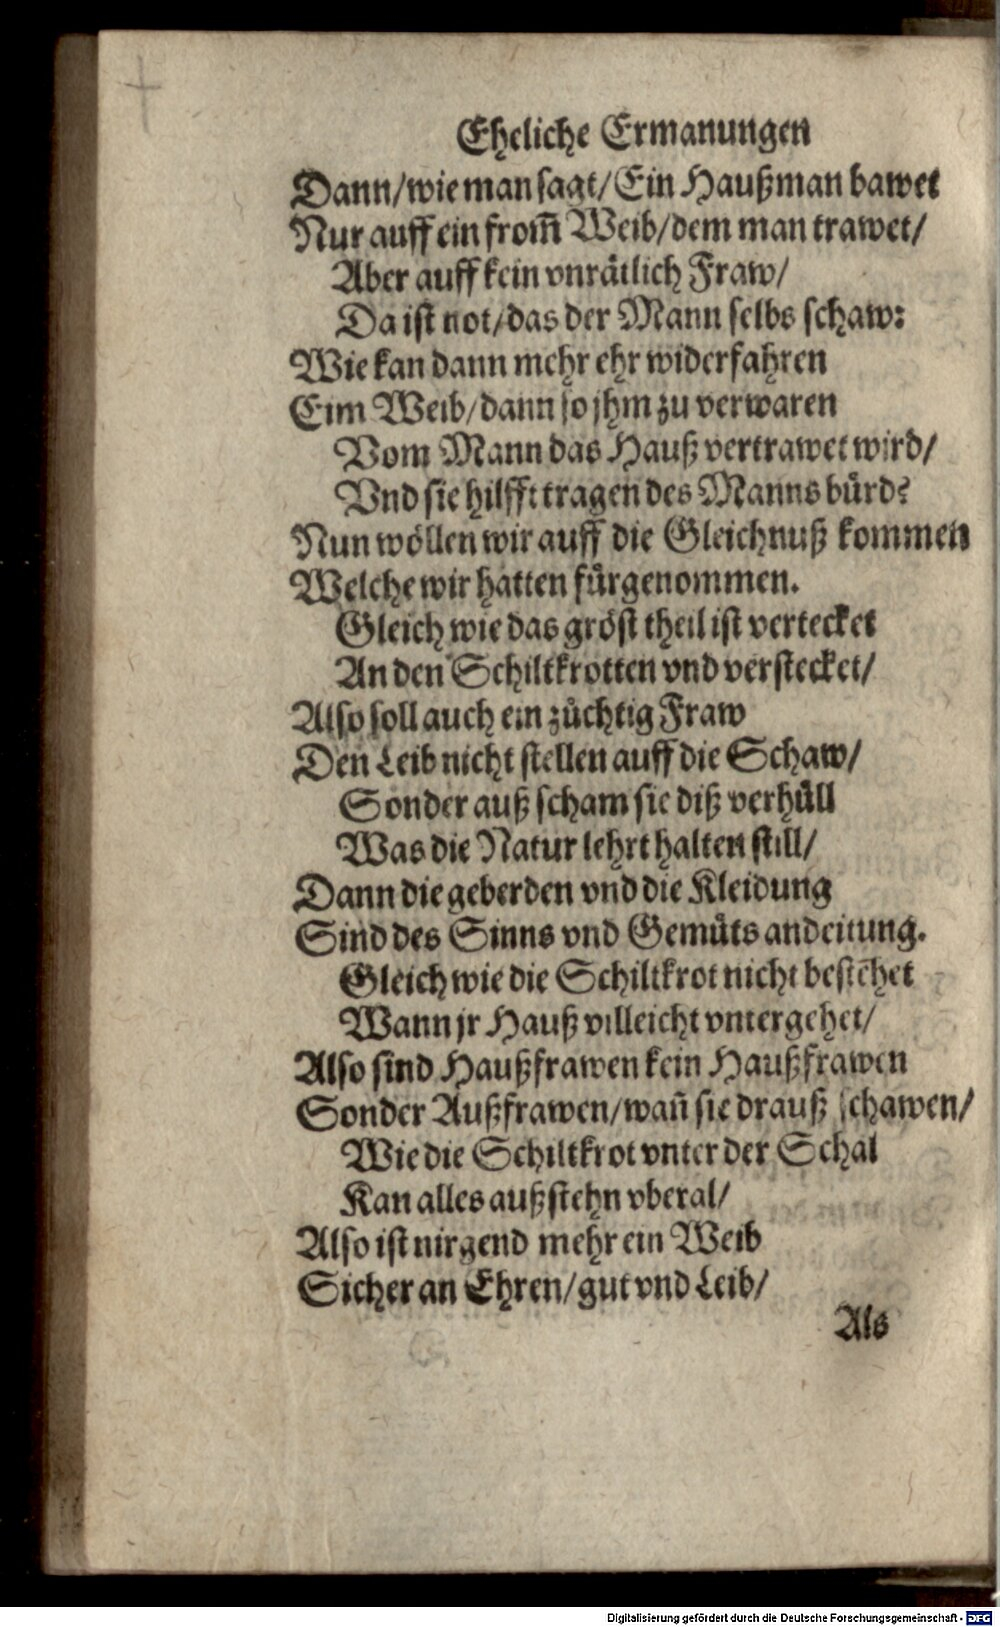 Eheliche Ermanungen
Dann/wie man sagt/Ein Haußman bawet
Nur auff ein from̃ Weib/dem man trawet/
Aber auff kein vnrätlich Fraw/
Da ist not/das der Mann selbs schaw:
Wie kan dann mehr ehr widerfahren
Eim Weib/dann so jhm zu verwaren
Vom Mann das Hauß vertrawet wird/
Vnd sie hilfft tragen des Manns bürd?
Nun wöllen wir auff die Gleichnuß kommen
Welche wir hatten fürgenommen.
Gleich wie das gröst theil ist vertecket
An den Schiltkrotten vnd verstecket/
Also soll auch ein züchtig Fraw
Den Leib nicht stellen auff die Schaw/
Sonder auß scham sie diß verhüll
Was die Natur lehrt halten still/
Dann die geberden vnd die Kleidung
Sind des Sinns vnd Gemüts andeitung.
Gleich wie die Schiltkrot nicht bestehet
Wann jr Hauß villeicht vntergehet/
Also sind Haußfrawen kein Haußfrawen
Sonder Außfrawen/wañ sie drauß schawen/
Wie die Schiltkrot vnter der Schal
Kan alles außstehn vberal/
Also ist nirgend mehr ein Weib
Sicher an Ehren/gut vnd Leib/
Als
Digitalisierung gefördert durch die Deutsche Forschungsgemeinschaft - DFG